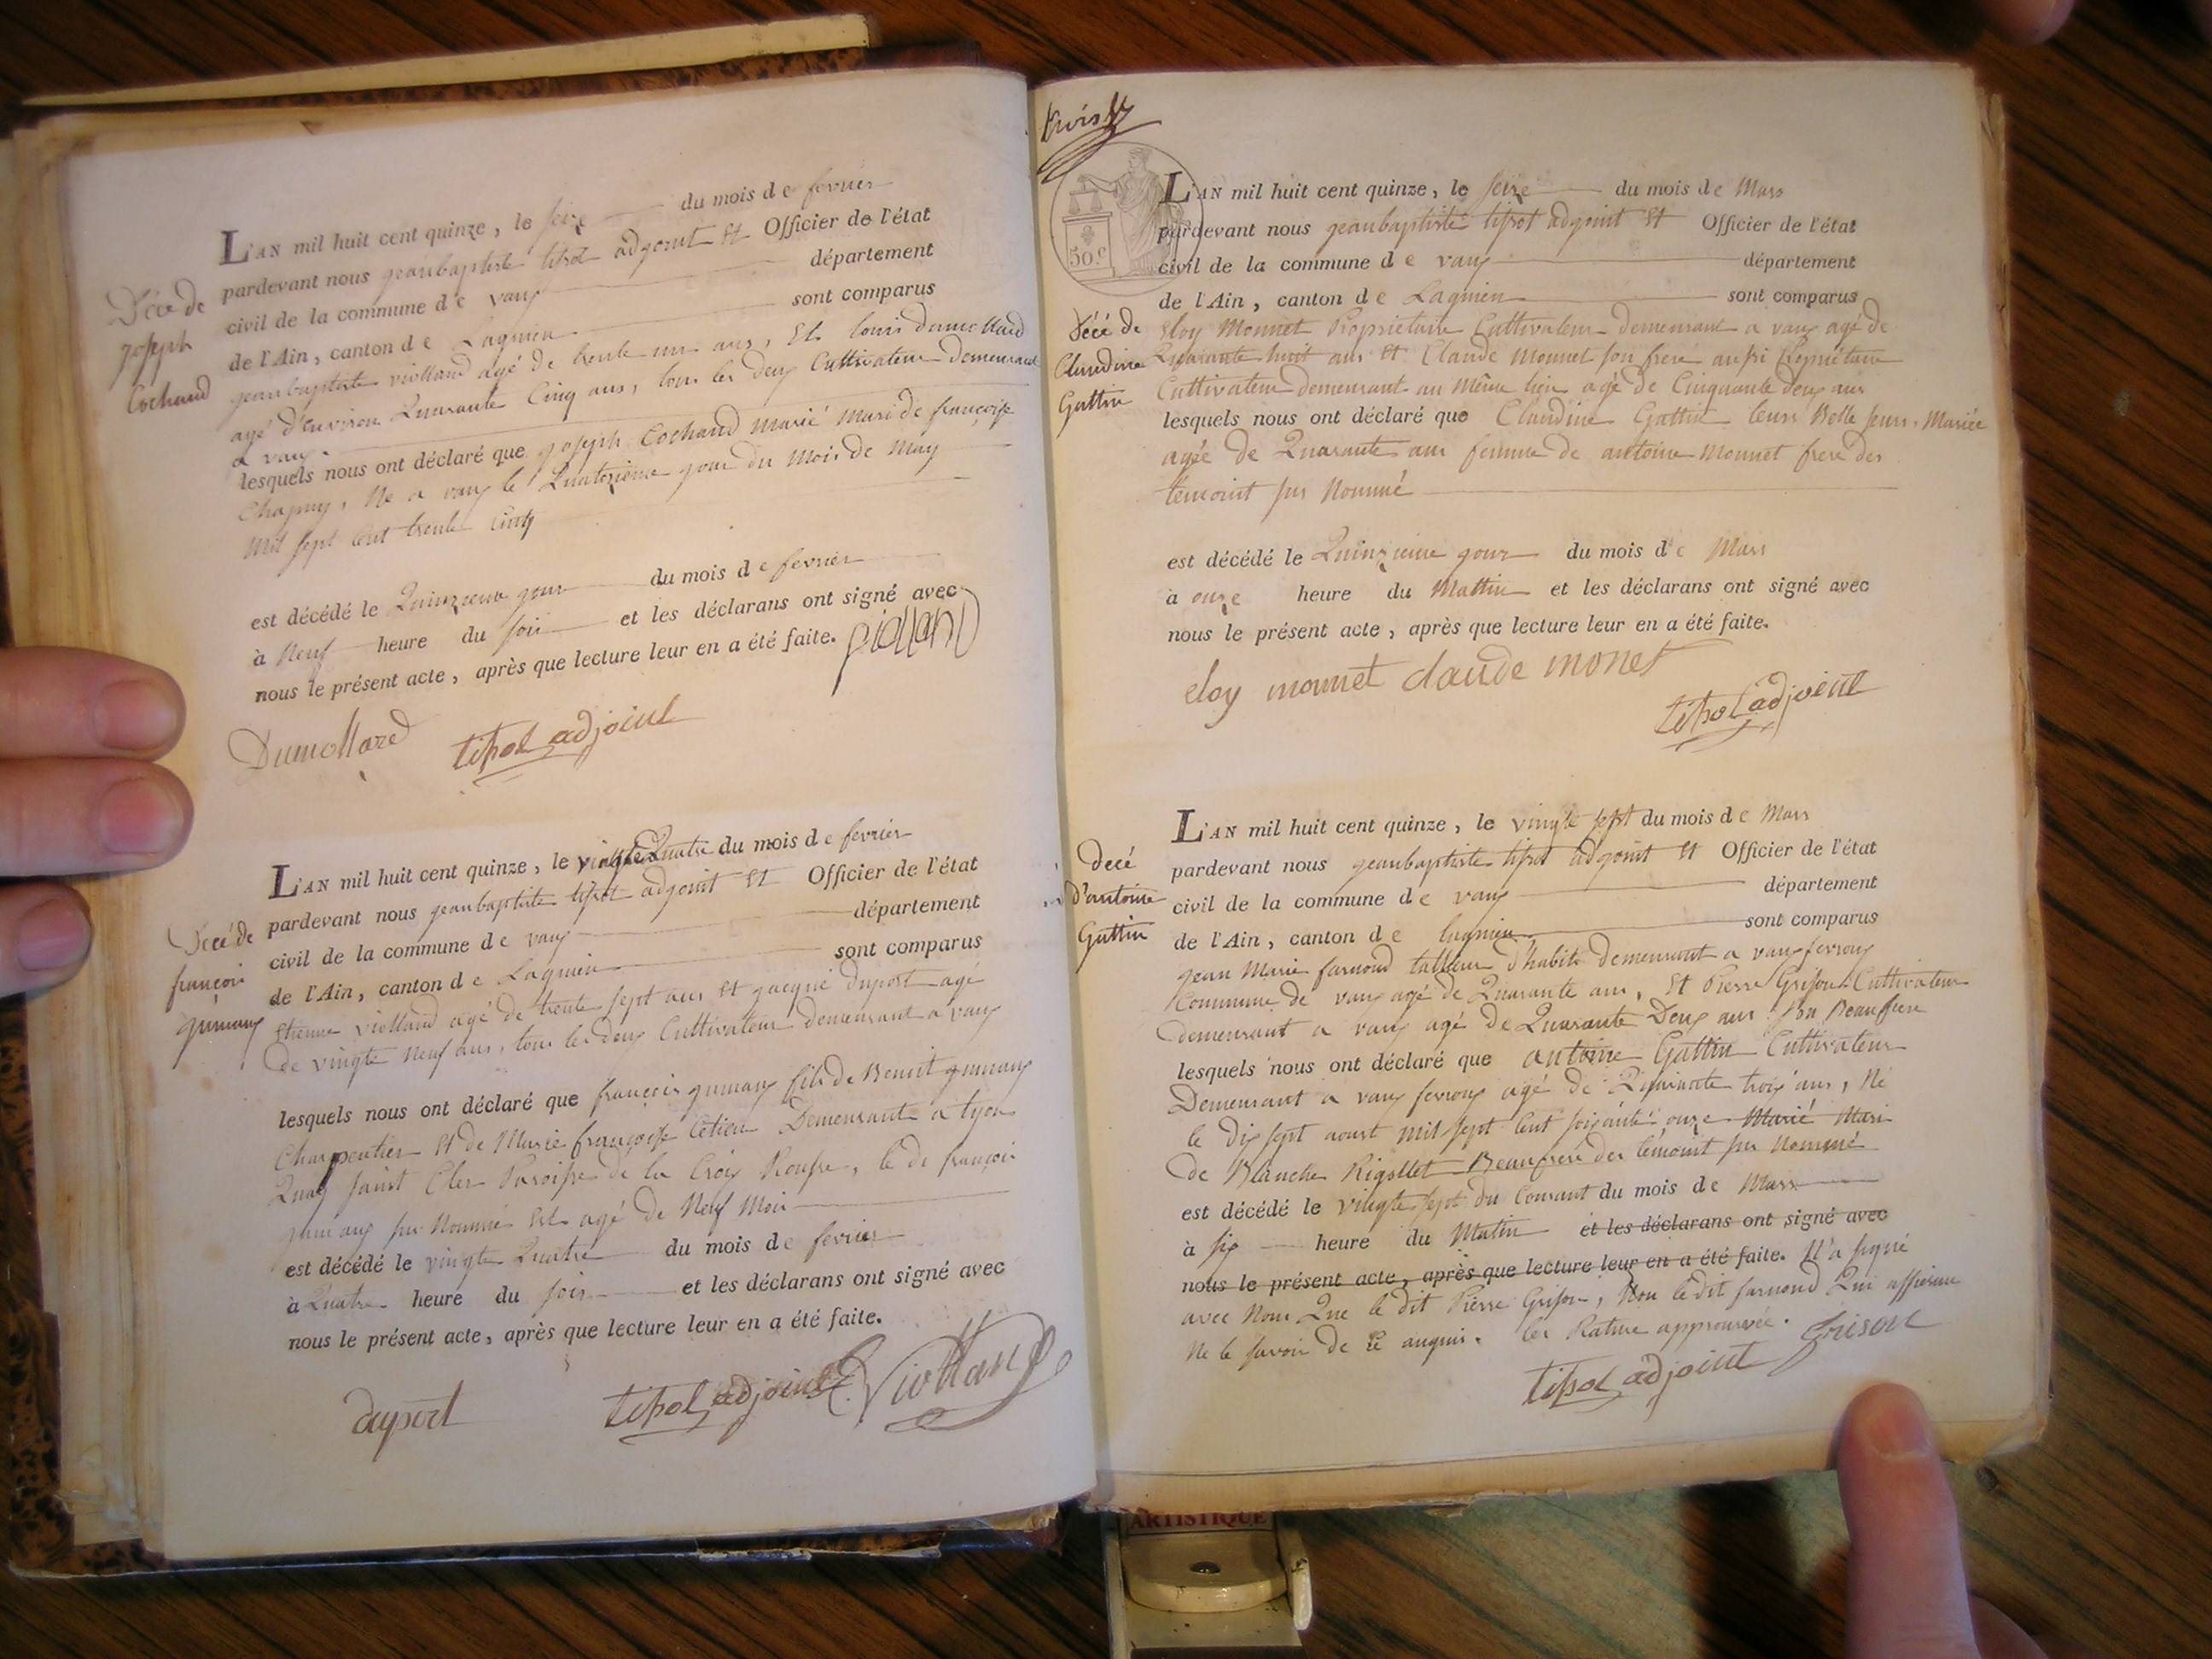 Décé de
joseph
Cochand
L'AN mil huit cent quinze, le seize du mois de fevrier
pardevant nous geanbaptiste tissot adgoint Et Officier de l'état
civil de la commune de vaux département
de l'Ain, canton de Lagnieu sont comparus
geanbaptiste violland agé de trente un ans, Et louis dumollard
agé d'environ Quarante Cinq ans, tous les deux Cultivateur demeurant
a vaux.
lesquels nous ont déclaré que joseph Cochand marié Mari de françoise
Chapuy, Né a vaux le Quatorzieme jour du Mois de May
Mil sept Cent trente Cinq
est décédé le Quinzieme jour du mois de fevrier
à Neuf heure du soir et les déclarans ont signé avec
nous le présent acte, après que lecture leur en a été faite.
Dumollard tissot adjoint
Décé de
françois
L'AN mil huit cent quinze, le vingte Quatre du mois de fevrier
pardevant nous geanbaptiste tissot adgoint Et Officier de l'état
civil de la commune de vaux département
de l'Ain, canton de Lagnieu sont comparus
Etienne violland agé de trente sept ans Et jacque duport agé
de vingte Neuf ans, tous les deux Cultivateur demeurant a vaux
lesquels nous ont déclaré que françois fils de Benoit
Charpentier Et de Marie françoise Demeurant a lyon
Quay saint Cler Paroisse de la Croix Rousse, le di françois
sus Nommé Est agé de Neuf Mois
est décédé le vingte Quatre du mois de fevrier
à Quatre heure du soir et les déclarans ont signé avec
nous le présent acte, après que lecture leur en a été faite.
duport tissot adjoint E. Violland
50.c
Décé de
Claudine
Guttin
L'AN mil huit cent quinze, le seize du mois de Mars
pardevant nous geanbaptiste tissot adgoint Et Officier de l'état
civil de la commune de vaux département
de l'Ain, canton de Lagnieu sont comparus
Eloy Monnet Propriétaire Cultivateur demeurant a vaux agé de
Quarante huit ans Et Claude Monnet son frere aussi Propriétaire
Cultivateur demeurant au même lieu agé de Cinquante deux ans
lesquels nous ont déclaré que Claudine Guttin leurs Belle seurs, Mariée
agée de Quarante ans femme de antoine Monnet frere des
temoint sus Nommé
est décédé le Quinzieme jour du mois de Mars
à onze heure du Mattin et les déclarans ont signé avec
nous le présent acte, après que lecture leur en a été faite.
eloy monnet claude monet
tissot adjoint
decé
d'antoine
Guttin
L'AN mil huit cent quinze, le vingte sept du mois de Mars
pardevant nous geanbaptiste tissot adgoint Et Officier de l'état
civil de la commune de vaux département
de l'Ain, canton de lagnieu sont comparus
jean Marie farnoud tallieur d'habits demeurant a vaux fevroux
Commune de vaux agé de Quarante ans, Et Pierre Grison Cultivateur
demeurant a vaux agé de Quarante Deux ans son Beaufrere
lesquels nous ont déclaré que antoine Guttin Cultivateur
Demeurant a vaux fevroux agé de Quarante trois ans, Né
le dix sept aoust Mil sept Cent soixante onze Marié Mari
de Blanche Rigollet Beaufrere des témoint sus Nommé
est décédé le vingte sept du Courant du mois de Mars
à six heure du Matin et les déclarans ont signé avec
nous le présent acte, après que lecture leur en a été faite. N'a signé
avec Nous Que le dit Pierre Grison, Non le dit farnoud Qui affirme
Ne le savoir de Ce anquis. les Rature approuvée.
tissot adjoint Grison
ARTISTIQUE